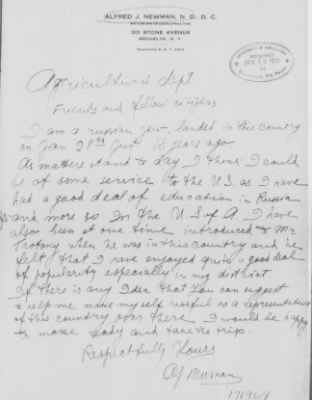 ALFRED J. NEWMAN, N. D., D. C.
301 STONE AVENUE
BROOKLYN, N. Y.
Agricultural Dept
Friends and fellow citizens
I am a russian jew, landed in this country
on Jan 28th just 18 years ago
As matters stand to day I think I could
be of some service to the U.S. as I have
had a good deal of education in Russia
and more so in the U.S. of A. I have
also been at one time introduced to Mr
Trotzky when he was in this country and he
felt that I have enjoyed quite a good deal
of popularity especially in my district.
If there is any Idea that you can suggest
to help me make my self useful as a representative
of this country over there I would be happy
to make ready and take the trip.
Respectfully Yours
AJ Newman